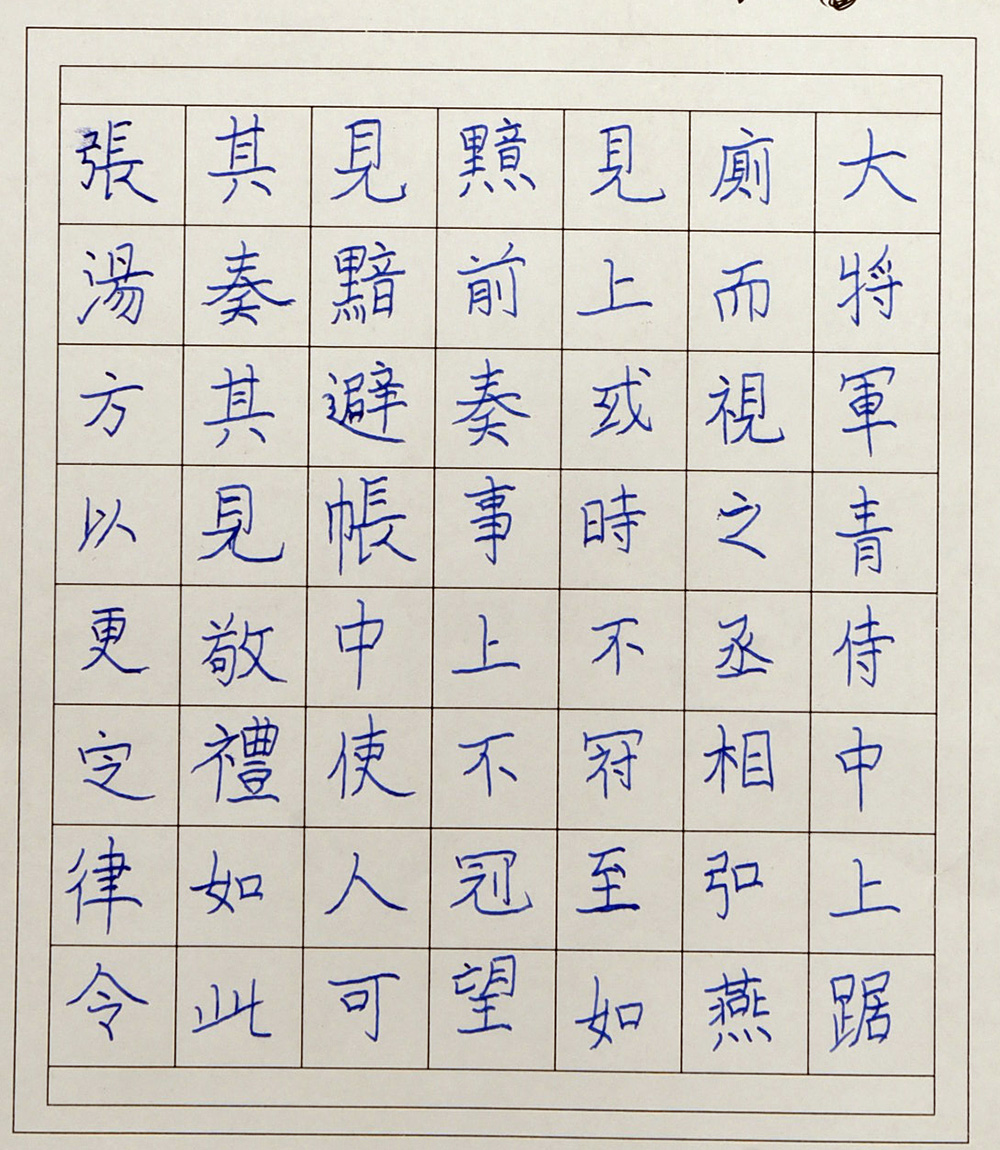 大將軍青侍中上踞
廁而視之丞相弘燕
見上或時不冠至如
黯前奏事上不冠望
見黯避帳中使人可
其奏其見敬禮如此
張湯方以更定律令